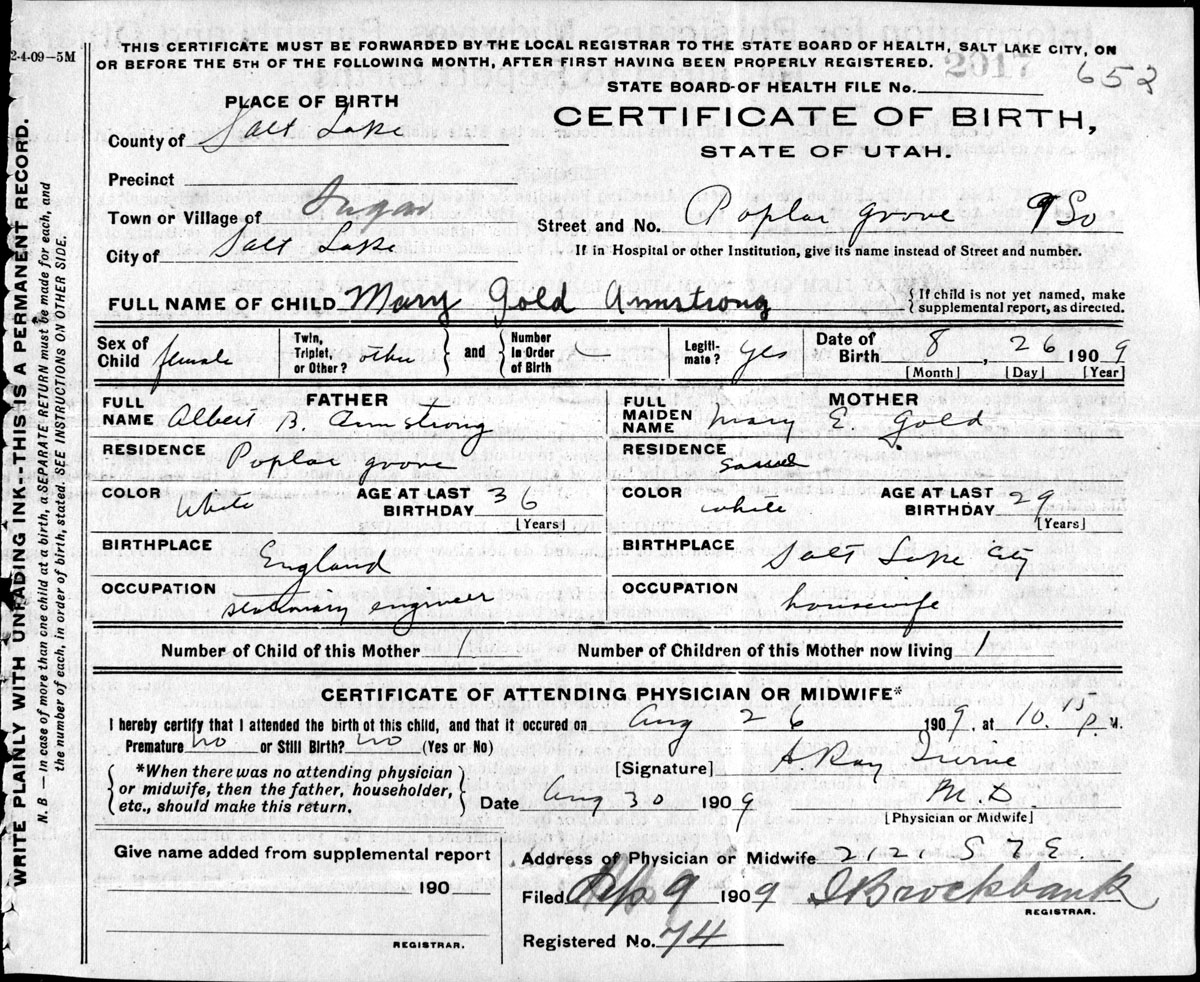 2-4-09—5M
THIS CERTIFICATE MUST BE FORWARDED BY THE LOCAL REGISTRAR TO THE STATE BOARD OF HEALTH, SALT LAKE CITY, ON
OR BEFORE THE 5TH OF THE FOLLOWING MONTH, AFTER FIRST HAVING BEEN PROPERLY REGISTERED.
2017
652
STATE BOARD OF HEALTH FILE No.
PLACE OF BIRTH
CERTIFICATE OF BIRTH,
STATE OF UTAH.
County of Salt Lake
Precinct
Town or Village of Sugar
Street and No. Poplar Grove 9 So
City of Salt Lake
If in Hospital or other Institution, give its name instead of Street and number.
FULL NAME OF CHILD Mary Gold Armstrong
{ If child is not yet named, make
supplemental report, as directed.
Sex of Child female
Twin, Triplet, or Other? other
and
Number in Order of Birth
Legitimate? yes
Date of Birth 8, 26 1909
[Month] [Day] [Year]
FATHER
FULL NAME Albert B. Armstrong
RESIDENCE Poplar Grove
COLOR White
AGE AT LAST BIRTHDAY 36
[Years]
BIRTHPLACE England
OCCUPATION stationary engineer
MOTHER
FULL MAIDEN NAME Mary E. Gold
RESIDENCE
COLOR white
AGE AT LAST BIRTHDAY 29
[Years]
BIRTHPLACE Salt Lake City
OCCUPATION housewife
Number of Child of this Mother 1
Number of Children of this Mother now living 1
CERTIFICATE OF ATTENDING PHYSICIAN OR MIDWIFE*
I hereby certify that I attended the birth of this child, and that it occured on Aug 26 1909, at 10.15 P. M.
Premature no or Still Birth? no (Yes or No)
*When there was no attending physician
or midwife, then the father, householder,
etc., should make this return.
[Signature] Ray
Date Aug 30 1909
M.D.
[Physician or Midwife]
Give name added from supplemental report
190
REGISTRAR.
Address of Physician or Midwife 2121 S 7 E.
Filed Sep 9 1909 Brockbank
REGISTRAR.
Registered No. 74
WRITE PLAINLY WITH UNFADING INK--THIS IS A PERMANENT RECORD.
N. B.—In case of more than one child at a birth, a SEPARATE RETURN must be made for each, and
the number of each, in order of birth, stated. SEE INSTRUCTIONS ON OTHER SIDE.